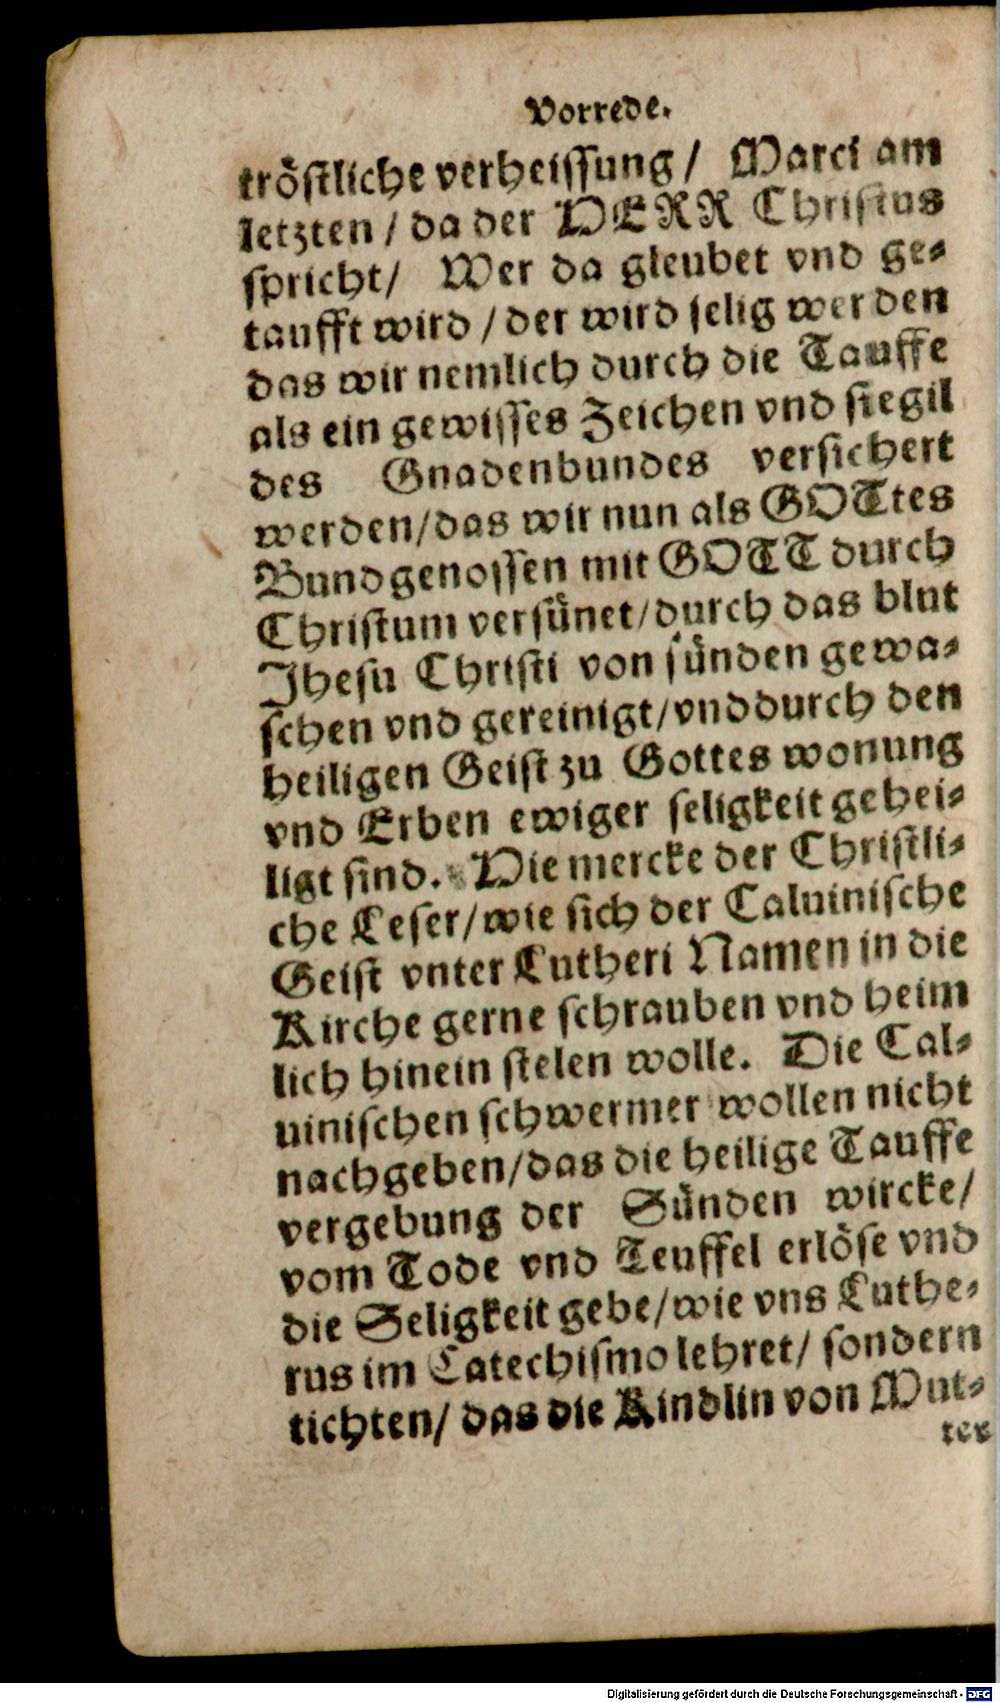 Vorrede.
tröstliche verheissung / Marci am
letzten / da der HERR Christus
spricht / Wer da gleubet vnd ge-
taufft wird / der wird selig werden
das wir nemlich durch die Tauffe
als ein gewisses Zeichen vnd siegil
des Gnadenbundes versichert
werden / das wir nun als GOTtes
Bundgenossen mit GOTT durch
Christum versünet / durch das blut
Jhesu Christi von sünden gewa-
schen vnd gereinigt / vnd durch den
heiligen Geist zu Gottes wonung
vnd Erben ewiger seligkeit gehei-
ligt sind. Hie mercke der Christli-
che Leser / wie sich der Caluinische
Geist vnter Lutheri Namen in die
Kirche gerne schrauben vnd heim
lich hinein stelen wolle. Die Cal-
uinischen schwermer wollen nicht
nachgeben / das die heilige Tauffe
vergebung der Sünden wircke /
vom Tode vnd Teuffel erlöse vnd
die Seligkeit gebe / wie vns Luthe-
rus im Catechismo lehret / sondern
tichten / das die Kindlin von Mut-
ter
Digitalisierung gefördert durch die Deutsche Forschungsgemeinschaft - DFG